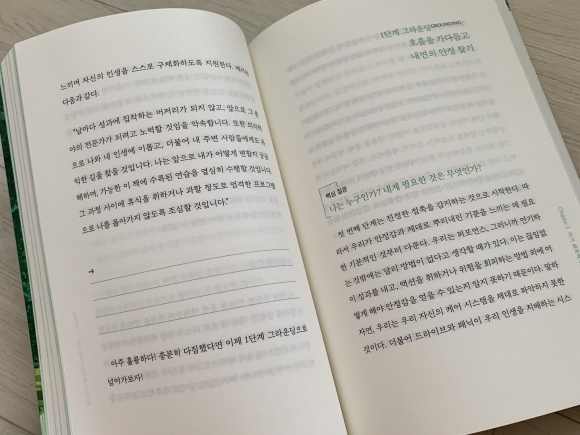 느끼며 자신의 인생을 스스로 구체화하도록 지원한다. 예시는
다음과 같다.
"날마다 성과에 집착하는 머저리가 되지 않고, 앞으로 그 분
야의 전문가가 되려고 노력할 것임을 약속합니다. 또한 의식적
으로 나와 내 인생에 이롭고, 더불어 내 주변 사람들에게도 유
익한 길을 찾을 것입니다. 나는 앞으로 내가 어떻게 변할지 궁금
해하며, 가능한 이 책에 수록된 연습을 열심히 수행할 것입니다.
그 과정 사이에 휴식을 취하거나 과할 정도로 엄격한 프로그램
으로 나를 몰아가지 않도록 조심할 것입니다."
→
아주 훌륭하다! 충분히 다짐했다면 이제 1단계 그라운딩으로
넘어가보자!
1단계 그라운딩GROUNDING:
호흡을 가다듬고
내면의 안정 찾기
핵심 질문
나는 누구인가? 내게 필요한 것은 무엇인가?
첫 번째 단계는 진정한 접촉을 감지하는 것으로 시작한다. 따
라서 우리가 안정감과 제대로 뿌리내린 기분을 느끼는 데 필요
한 기본적인 것부터 다룬다. 우리는 퍼포먼스, 그러니까 연기하
는 것밖에는 달리 방법이 없다고 생각할 때가 있다. 이는 끊임없
이 성과를 내고, 액션을 취하거나 위험을 회피하는 방법 외에 어
떻게 해야 안정감을 얻을 수 있는지 알지 못하기 때문이다. 말하
자면, 우리는 우리 자신의 케어 시스템을 제대로 파악하지 못한
것이다. 더불어 드라이브와 패닉이 우리 인생을 지배하는 시스